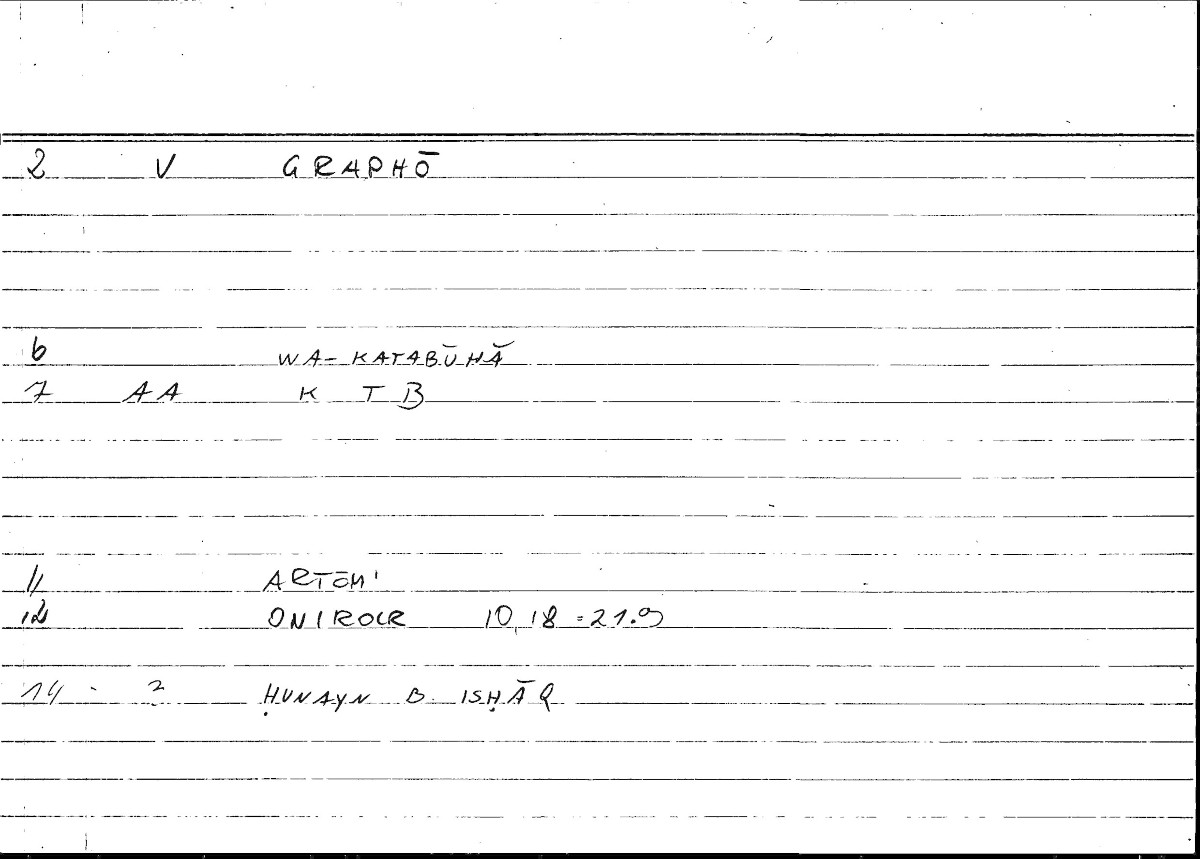 2 V GRAPHŌ
6 WA-KATABŪHĀ
7 AA K T B
11 ARTŌM'
12 ONIROCR 10,18 = 21.9
14 2 ḤUNAYN B. ISḤĀQ